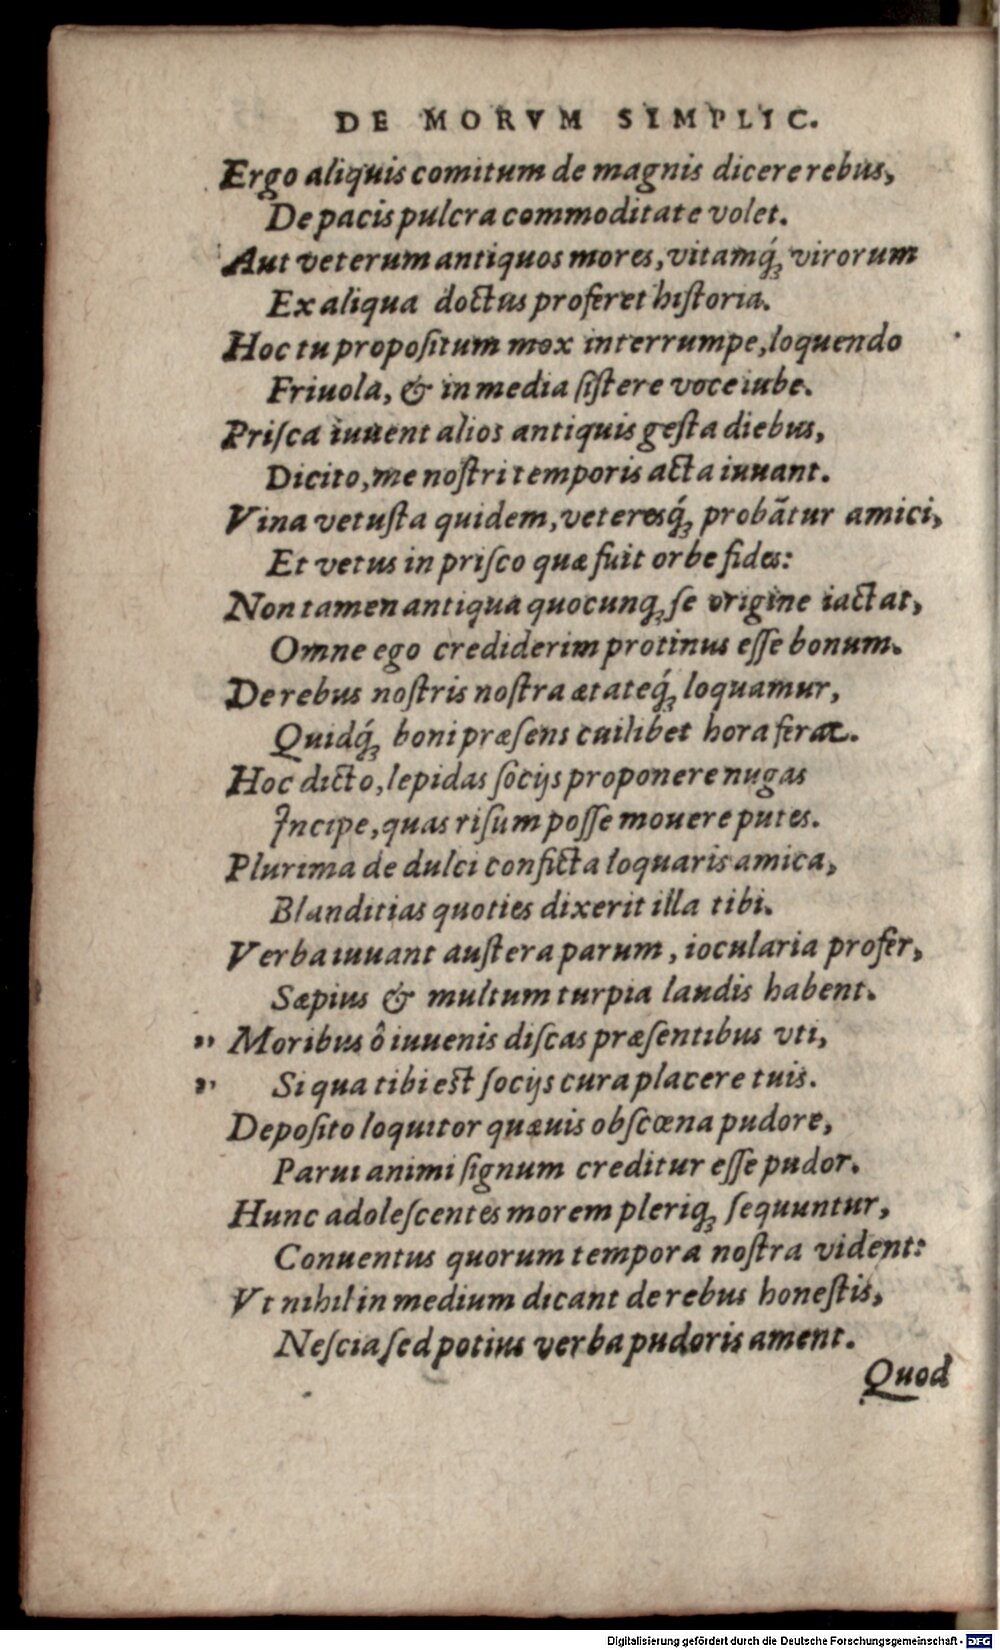 DE MORVM SIMPLIC.
Ergo aliquis comitum de magnis dicere rebus,
De pacis pulcra commoditate volet.
Aut veterum antiquos mores, vitamq́; virorum
Ex aliqua doctus proferet hiſtoria.
Hoc tu propoſitum mox interrumpe, loquendo
Friuola, & in media ſiſtere voce iube.
Priſca iuuent alios antiquis geſta diebus,
Dicito, me noſtri temporis acta iuuant.
Vina vetuſta quidem, veteresq́; probãtur amici,
Et vetus in priſco quæ fuit orbe fides:
Non tamen antiqua quocunq; ſe origine iactat,
Omne ego crediderim protinus eſſe bonum.
De rebus noſtris noſtra ætateq́; loquamur,
Quidq́; boni præſens cuilibet hora ferat.
Hoc dicto, lepidas ſocijs proponere nugas
Incipe, quas riſum poſſe mouere putes.
Plurima de dulci conficta loquaris amica,
Blanditias quoties dixerit illa tibi.
Verba iuuant auſtera parum, iocularia profer,
Sæpius & multum turpia laudis habent.
„ Moribus ô iuuenis diſcas præſentibus vti,
„ Si qua tibi eſt ſocijs cura placere tuis.
Depoſito loquitor quæuis obſcœna pudore,
Parui animi ſignum creditur eſſe pudor.
Hunc adoleſcentes morem pleriq; ſequuntur,
Conuentus quorum tempora noſtra vident:
Vt nihil in medium dicant de rebus honeſtis,
Neſcia ſed potius verba pudoris ament.
Quod
Digitalisierung gefördert durch die Deutsche Forschungsgemeinschaft - DFG